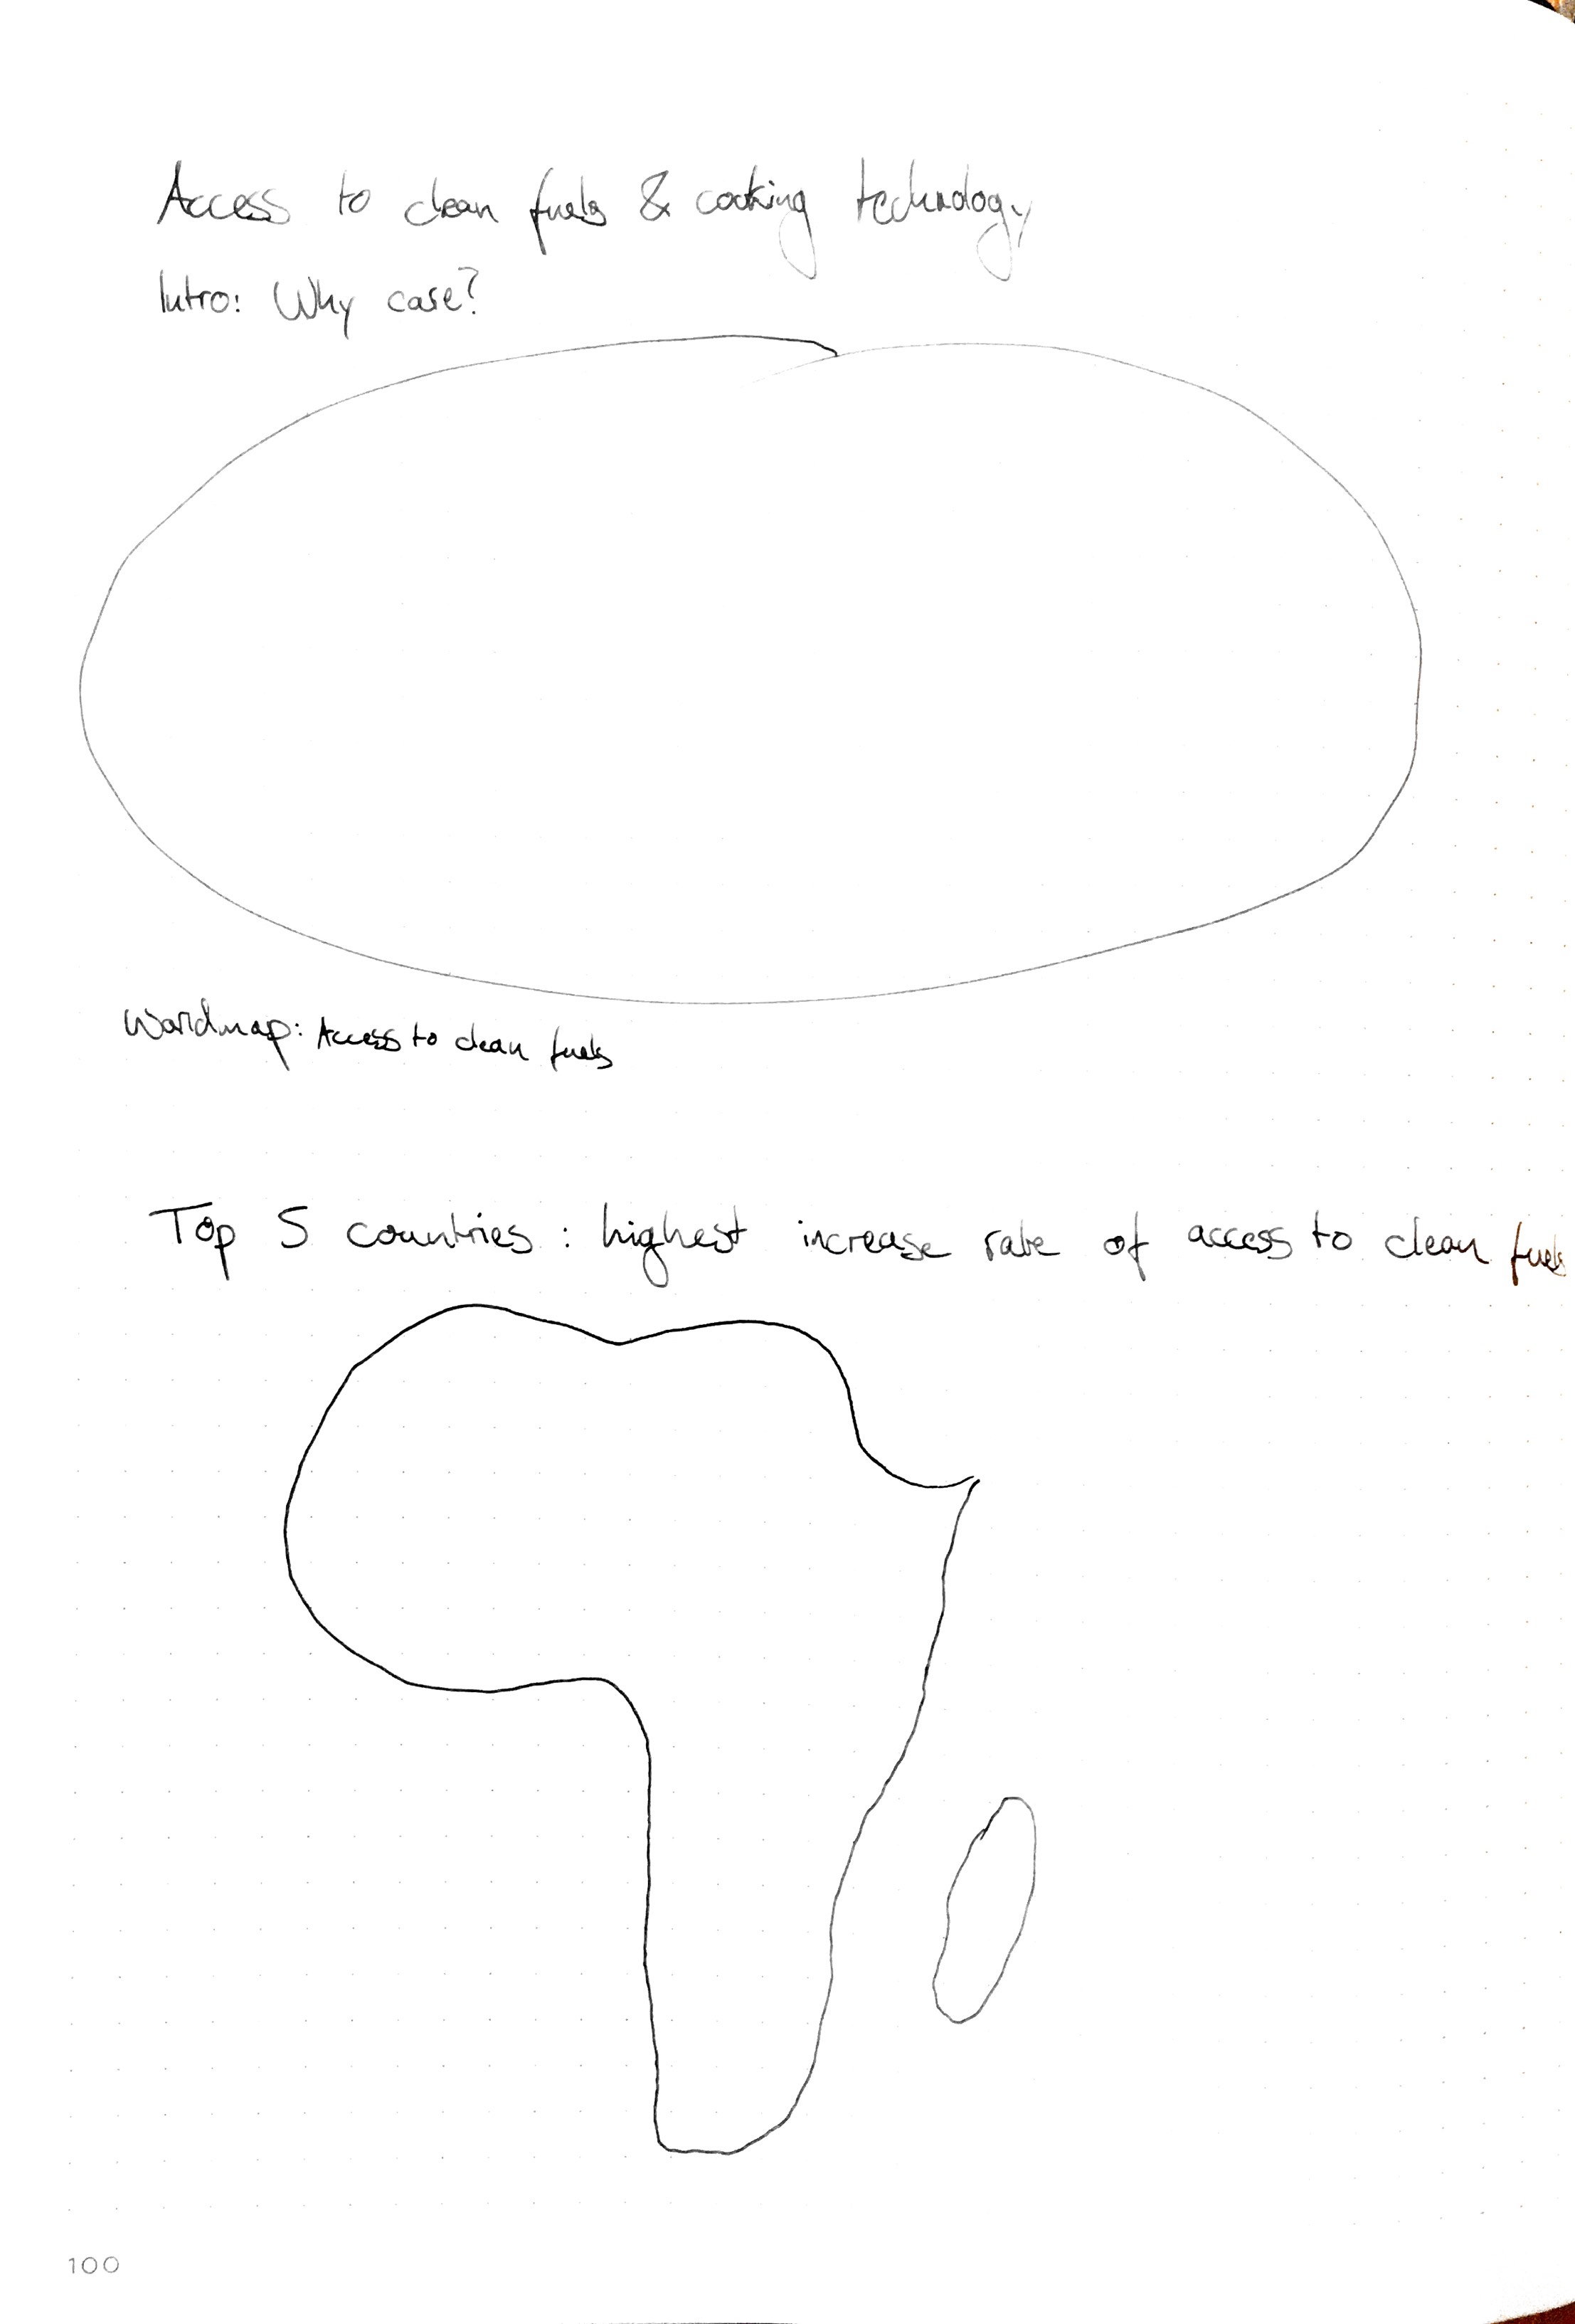 Access to clean fuels & cooking technology
Intro: Why case?
Worldmap: Access to clean fuels
Top 5 countries: highest increase rate of access to clean fuels
100